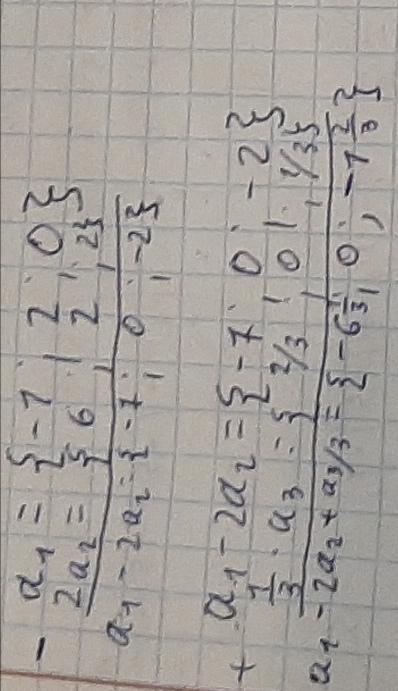 - a₁ = {-1; 2; 0}
2a₂ = {6; 2; 2}
a₁ - 2a₂ = {-7; 0; -2}
+ a₁ - 2a₂ = {-7; 0; -2}
1/3 · a₃ = {2/3; 0; 1/3}
a₁ - 2a₂ + a₃/3 = {-6 1/3; 0; -1 2/3}